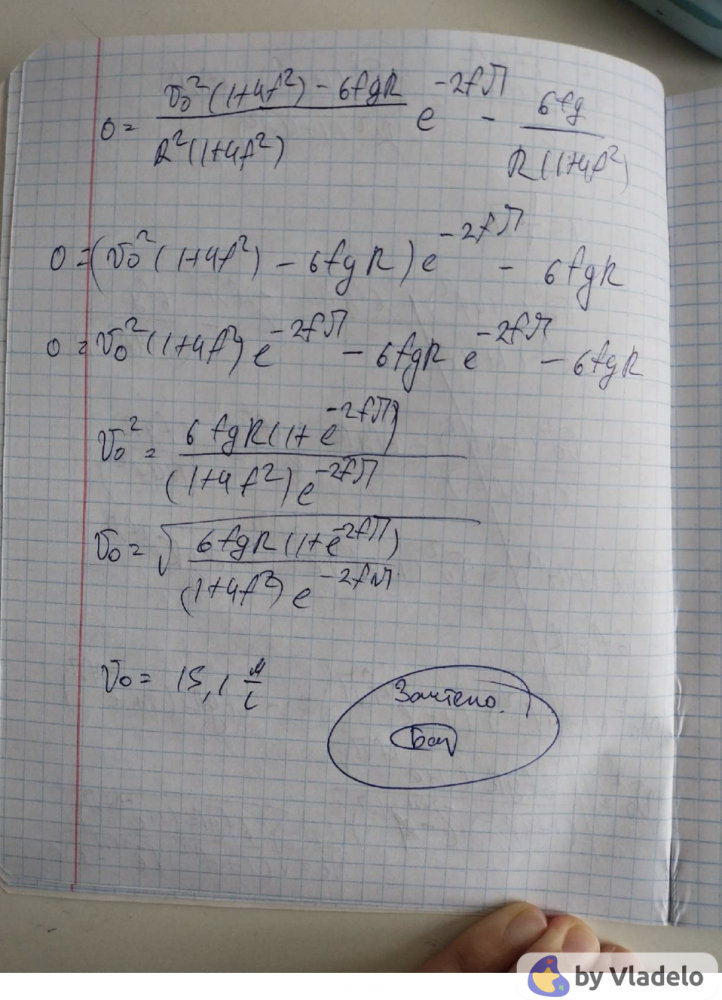 0 = (v₀²(1+4f²) - 6fgR) / (R²(1+4f²)) e^(-2fπ) - 6fg / (R(1+4f²))
0 = (v₀²(1+4f²) - 6fgR) e^(-2fπ) - 6fgR
0 = v₀²(1+4f²) e^(-2fπ) - 6fgR e^(-2fπ) - 6fgR
v₀² = 6fgR(1+e^(-2fπ)) / ((1+4f²) e^(-2fπ))
v₀ = √(6fgR(1+e^(-2fπ)) / ((1+4f²) e^(-2fπ)))
v₀ = 15,1 м/с
Зачтено.
by Vladelo